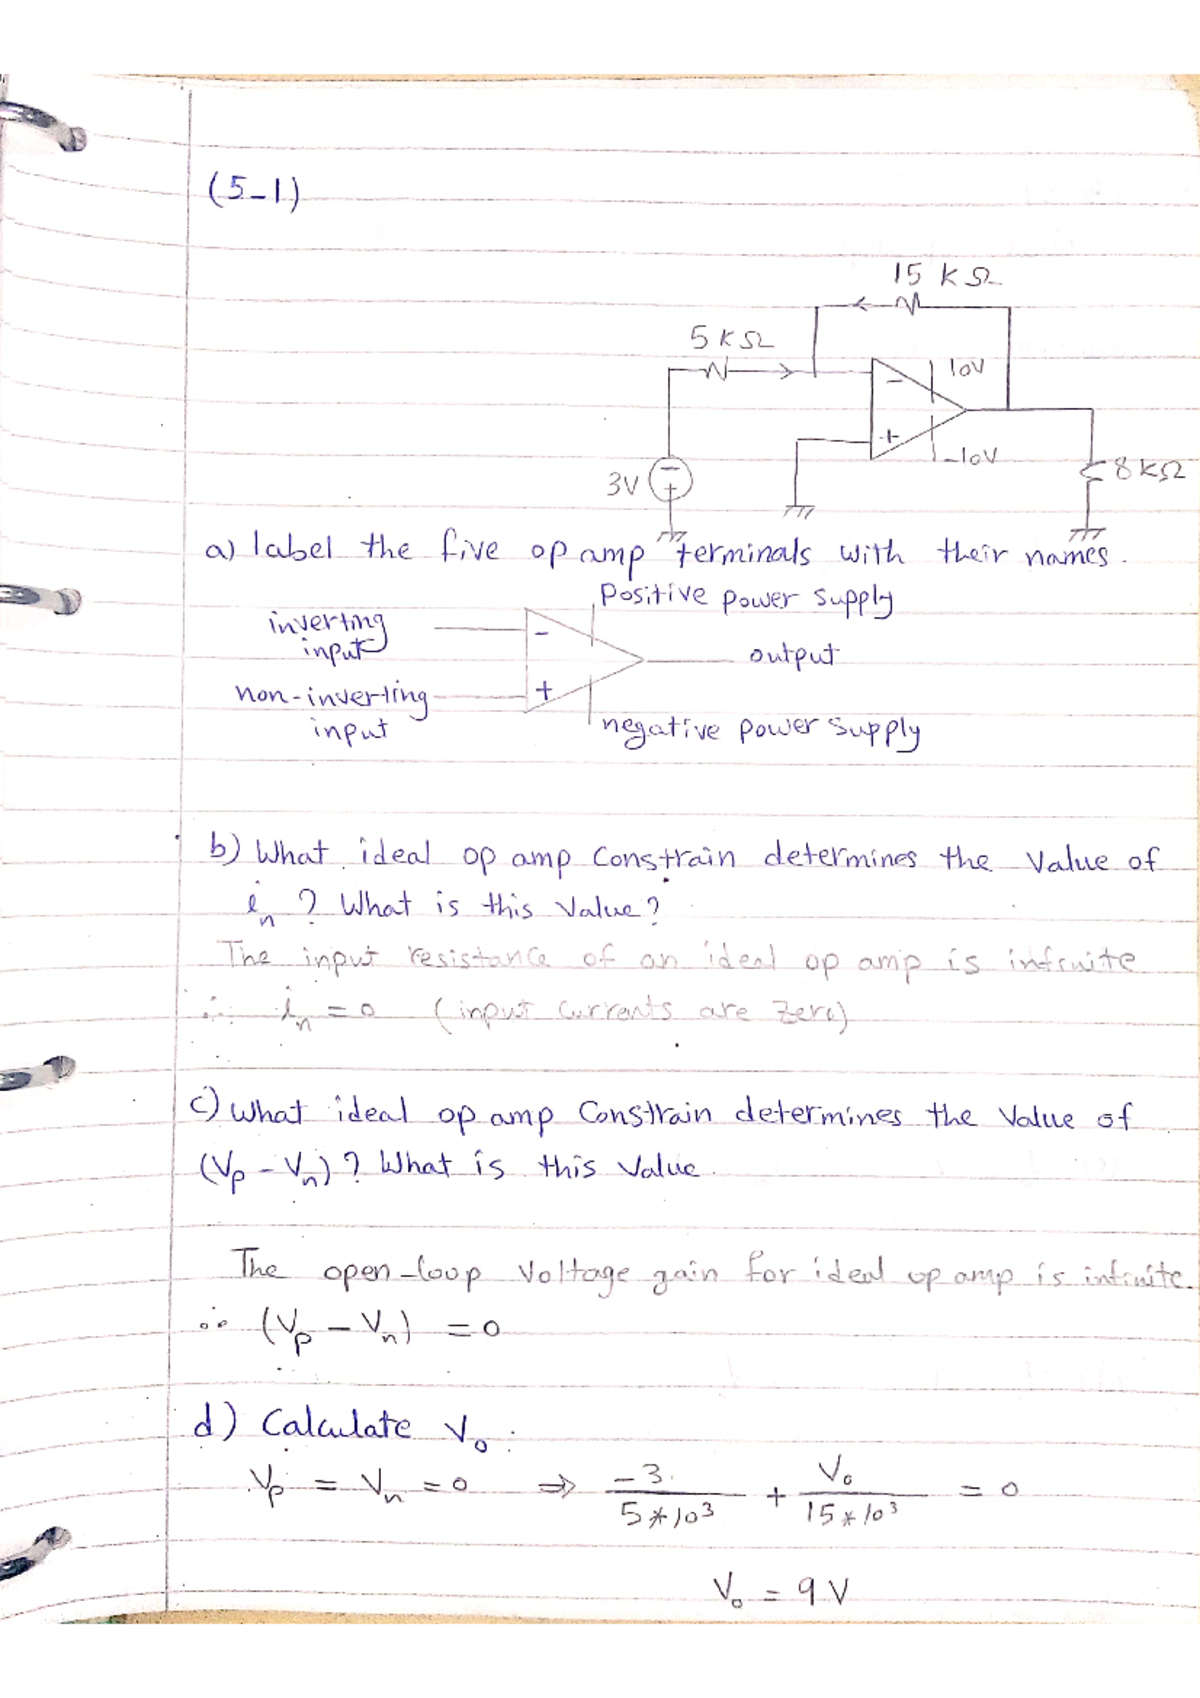 (5-1)
15 kΩ
5 kΩ
- 10V
+ -10V
3V - +
8 kΩ
a) label the five op amp terminals with their names.
Positive power supply
inverting
input
-
output
non-inverting
input
+
negative power supply
b) What ideal op amp Constrain determines the Value of
in ? What is this Value?
The input resistance of an ideal op amp is infinite
∴ in = 0 (input Currents are Zero)
c) What ideal op amp Constrain determines the Value of
(Vp - Vn) ? What is this Value.
The open-loop Voltage gain for ideal op amp is infinite.
∴ (Vp - Vn) = 0
d) Calculate Vo :
Vp = Vn = 0 ⇒ -3 / 5*10³ + Vo / 15*10³ = 0
Vo = 9 V